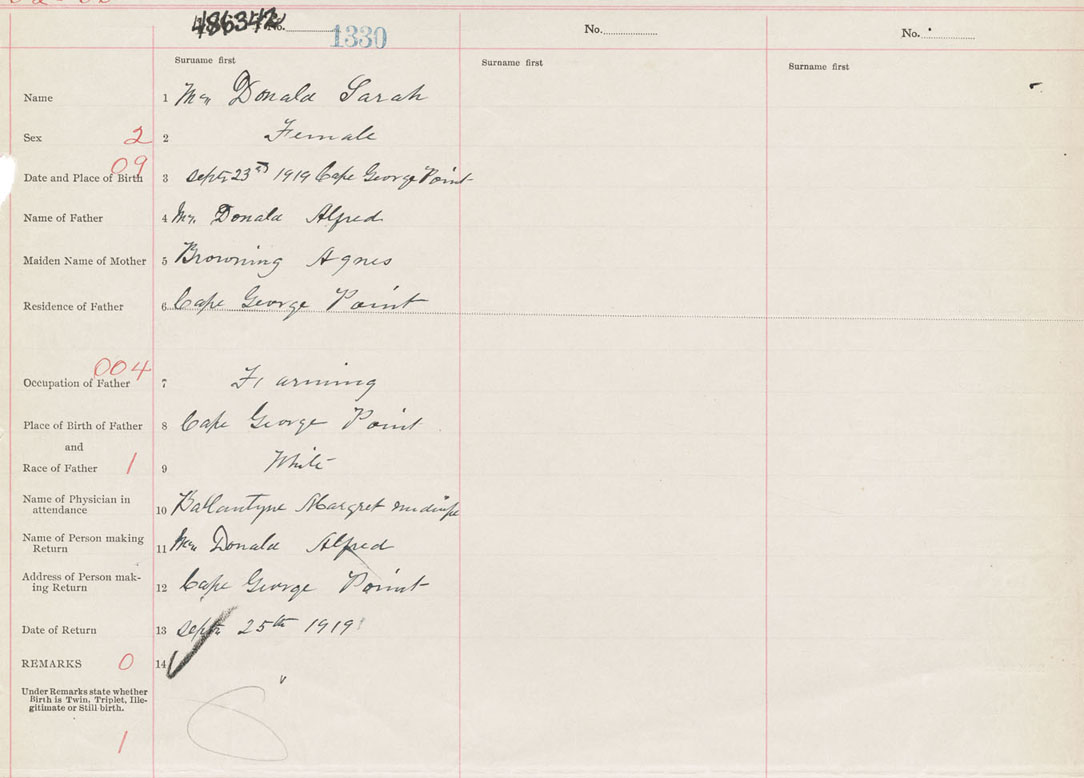 486342 No. 1330 No. No.
Surname first Surname first Surname first
Name 1 Mc Donald Sarah
Sex 2 2 Female
09
Date and Place of Birth 3 Sept 23rd 1919 Cape George Point
Name of Father 4 Mc Donald Alfred
Maiden Name of Mother 5 Browning Agnes
Residence of Father 6 Cape George Point
004
Occupation of Father 7 Farming
Place of Birth of Father 8 Cape George Point
and
Race of Father 1 9 White
Name of Physician in
attendance 10 Ballantyne Margret midwife
Name of Person making
Return 11 Mc Donald Alfred
Address of Person mak-
ing Return 12 Cape George Point
Date of Return 13 Sept 25th 1919
REMARKS 0 14
Under Remarks state whether
Birth is Twin, Triplet, Ille-
gitimate or Still-birth.
1